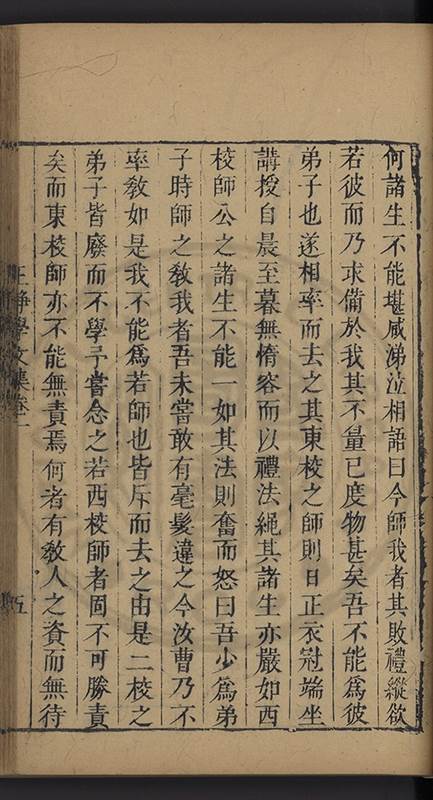 何諸生不能堪咸涕泣相語曰今師我者其敗禮縱欲
若彼而乃求備於我其不量已度物甚矣吾不能爲彼
弟子也遂相率而去之其東校之師則日正衣冠端坐
講授自晨至暮無惰容而以禮法繩其諸生亦嚴如西
校師公之諸生不能一如其法則奮而怒曰吾少爲弟
子時師之敎我者吾未嘗敢有毫髮違之今汝曹乃不
率敎如是我不能爲若師也皆斥而去之由是二校之
弟子皆廢而不學予嘗念之若西校師者固不可勝責
矣而東校師亦不能無責焉何者有敎人之資而無待
王靜學文集卷二
五